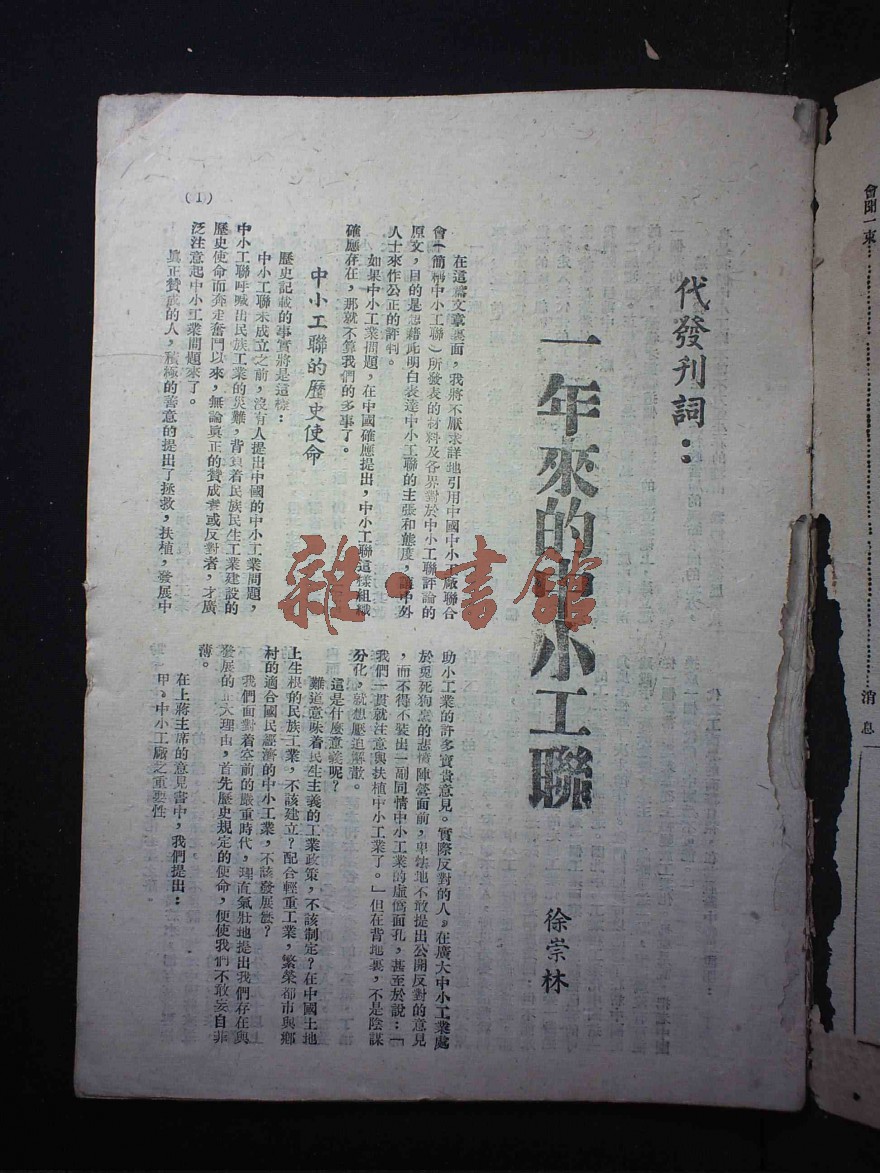 代發刊詞：
一年來的中小工聯
徐崇林
在這篇文章裏面，我將不厭求詳地引用中國中小工廠聯合
會（簡稱中小工聯）所發表的材料及各界對於中小工聯評論的
原文，目的是想藉此明白表達中小工聯的主張和態度，讓中外
人士來作公正的評判。
如果中小工業問題，在中國確應提出，中小工聯這樣組織
確應存在，那就不算我們的多事了。
中小工聯的歷史使命
歷史記載的事實將是這樣：
中小工聯未成立之前，沒有人提出中國的中小工業問題，
中小工聯呼喊出民族工業的災難，背負着民族民生工業建設的
歷史使命而奔走奮鬥以來，無論眞正的贊成者或反對者，才廣
泛注意起中小工業問題來了。
眞正贊成的人，積極的善意的提出了拯救，扶植，發展中
助小工業的許多寶貴意見。實際反對的人，在廣大中小工業處
於兎死狗烹的悲慘陣營面前，卑怯地不敢提出公開反對的意見
，而不得不裝出一副同情中小工業的虛僞面孔，甚至於說：「
我們一貫就注意與扶植中小工業了。」但在背地裏，不是陰謀
分化，就想壓迫解散。
這是什麼意義呢？
難道意味着民生主義的工業政策，不該制定？在中國土地
上生根的民族工業，不該建立？配合輕重工業，繁榮都市與鄉
村的適合國民經濟的中小工業，不該發展麼？
我們面對着空前的嚴重時代，理直氣壯地提出我們存在與
發展的上大理由，首先歷史規定的使命，便使我們不敢妄自非
薄。
在上蔣主席的意見書中，我們提出：
甲。中小工廠之重要性
（1）
會聞一束
消息
雜·書館